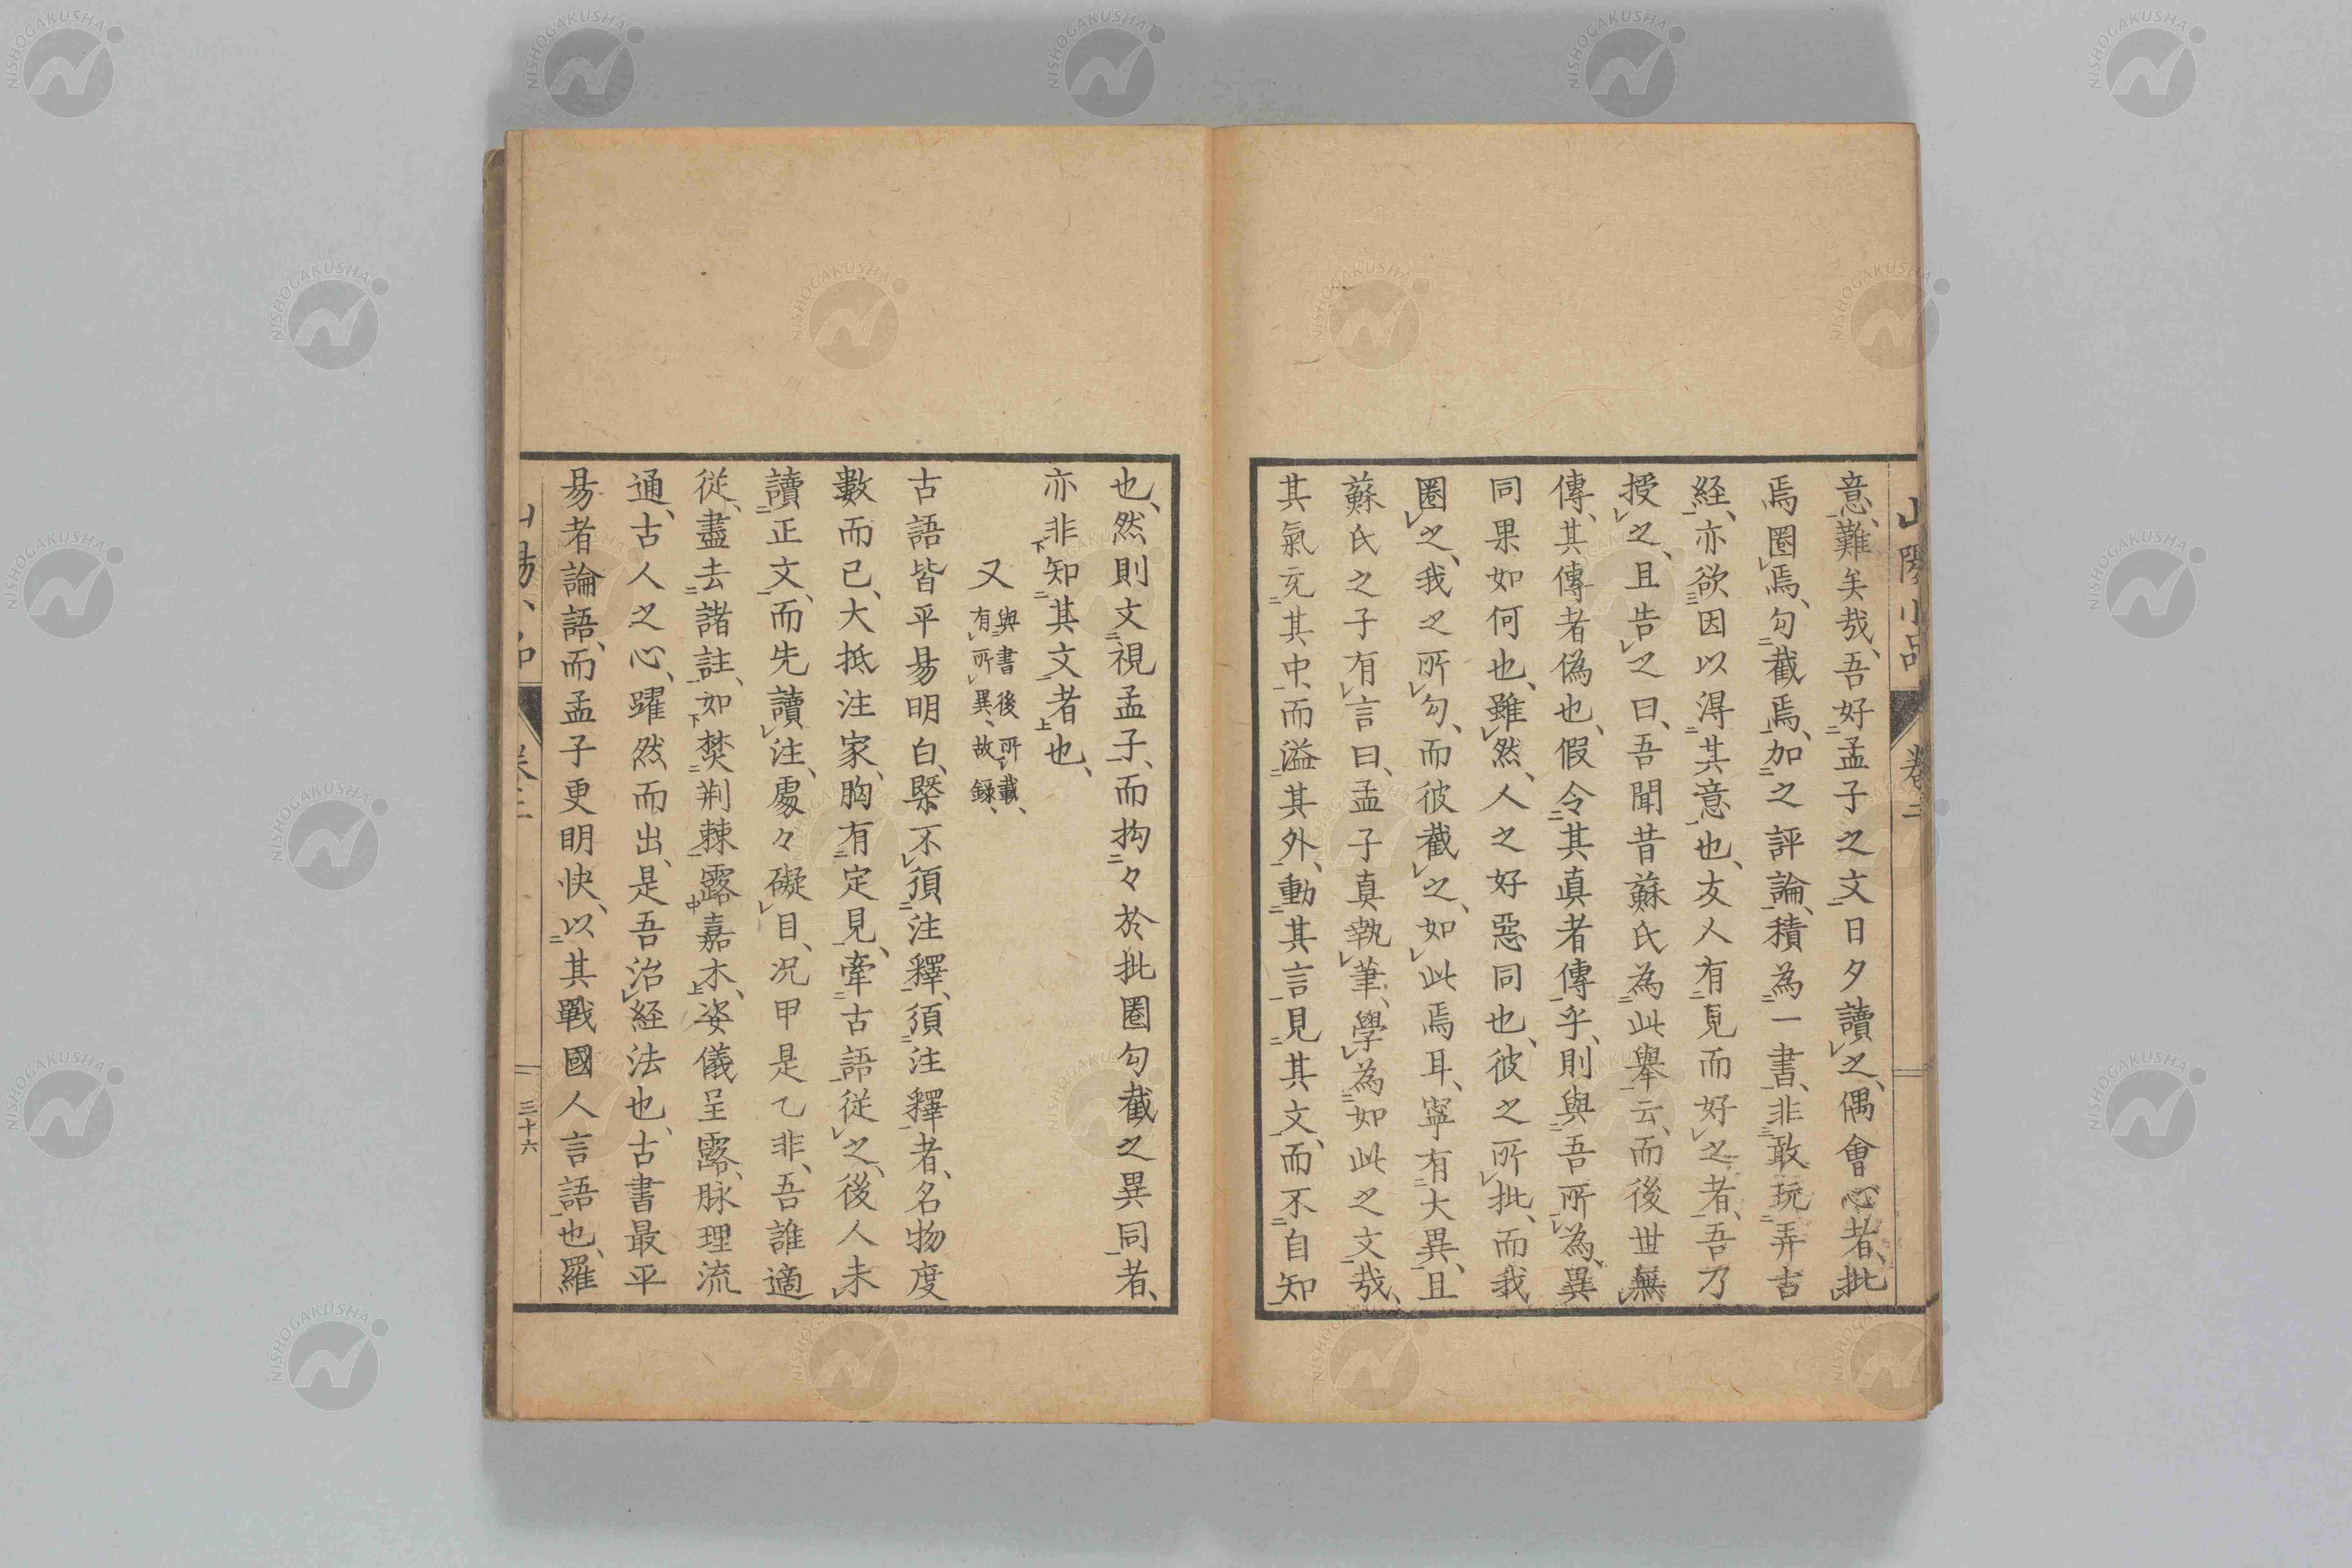 意、難矣哉、吾好孟子之文日夕讀之、偶會心者、批
焉圈焉、勾截焉、加之評論、積為一書、非敢玩弄古
経、亦欲因以淂其意也、友人有見而好之者、吾乃
授之、且告之曰、吾聞昔蘇氏為此舉云、而後世無
傳、其傳者偽也、假令其真者傳乎、則與吾所為、異
同果如何也、雖然、人之好惡同也、彼之所批、而我
圈之、我之所勾、而彼截之、如此焉耳、寧有大異、且
蘇氏之子有言曰、孟子真執筆、學為如此之文哉、
其氣充其中、而溢其外、動其言見其文、而不自知
也、然則文視孟子、而拘々於批圈勾截之異同者、
亦非知其文者也、
又
與書後所載、
有所異、故録、
古語皆平易明白、槩不須注釋、須注釋者、名物度
數而已、大抵注家、胸有定見、牽古語従之、後人未
讀正文、而先讀注、處々礙目、况甲是乙非、吾誰適
従、盡去諸註、如焚荆棘露嘉木、姿儀呈露、脉理流
通、古人之心、躍然而出、是吾治経法也、古書最平
易者論語、而孟子更明快、以其戰國人言語也、羅
三十六
NISHOGAKUSHA